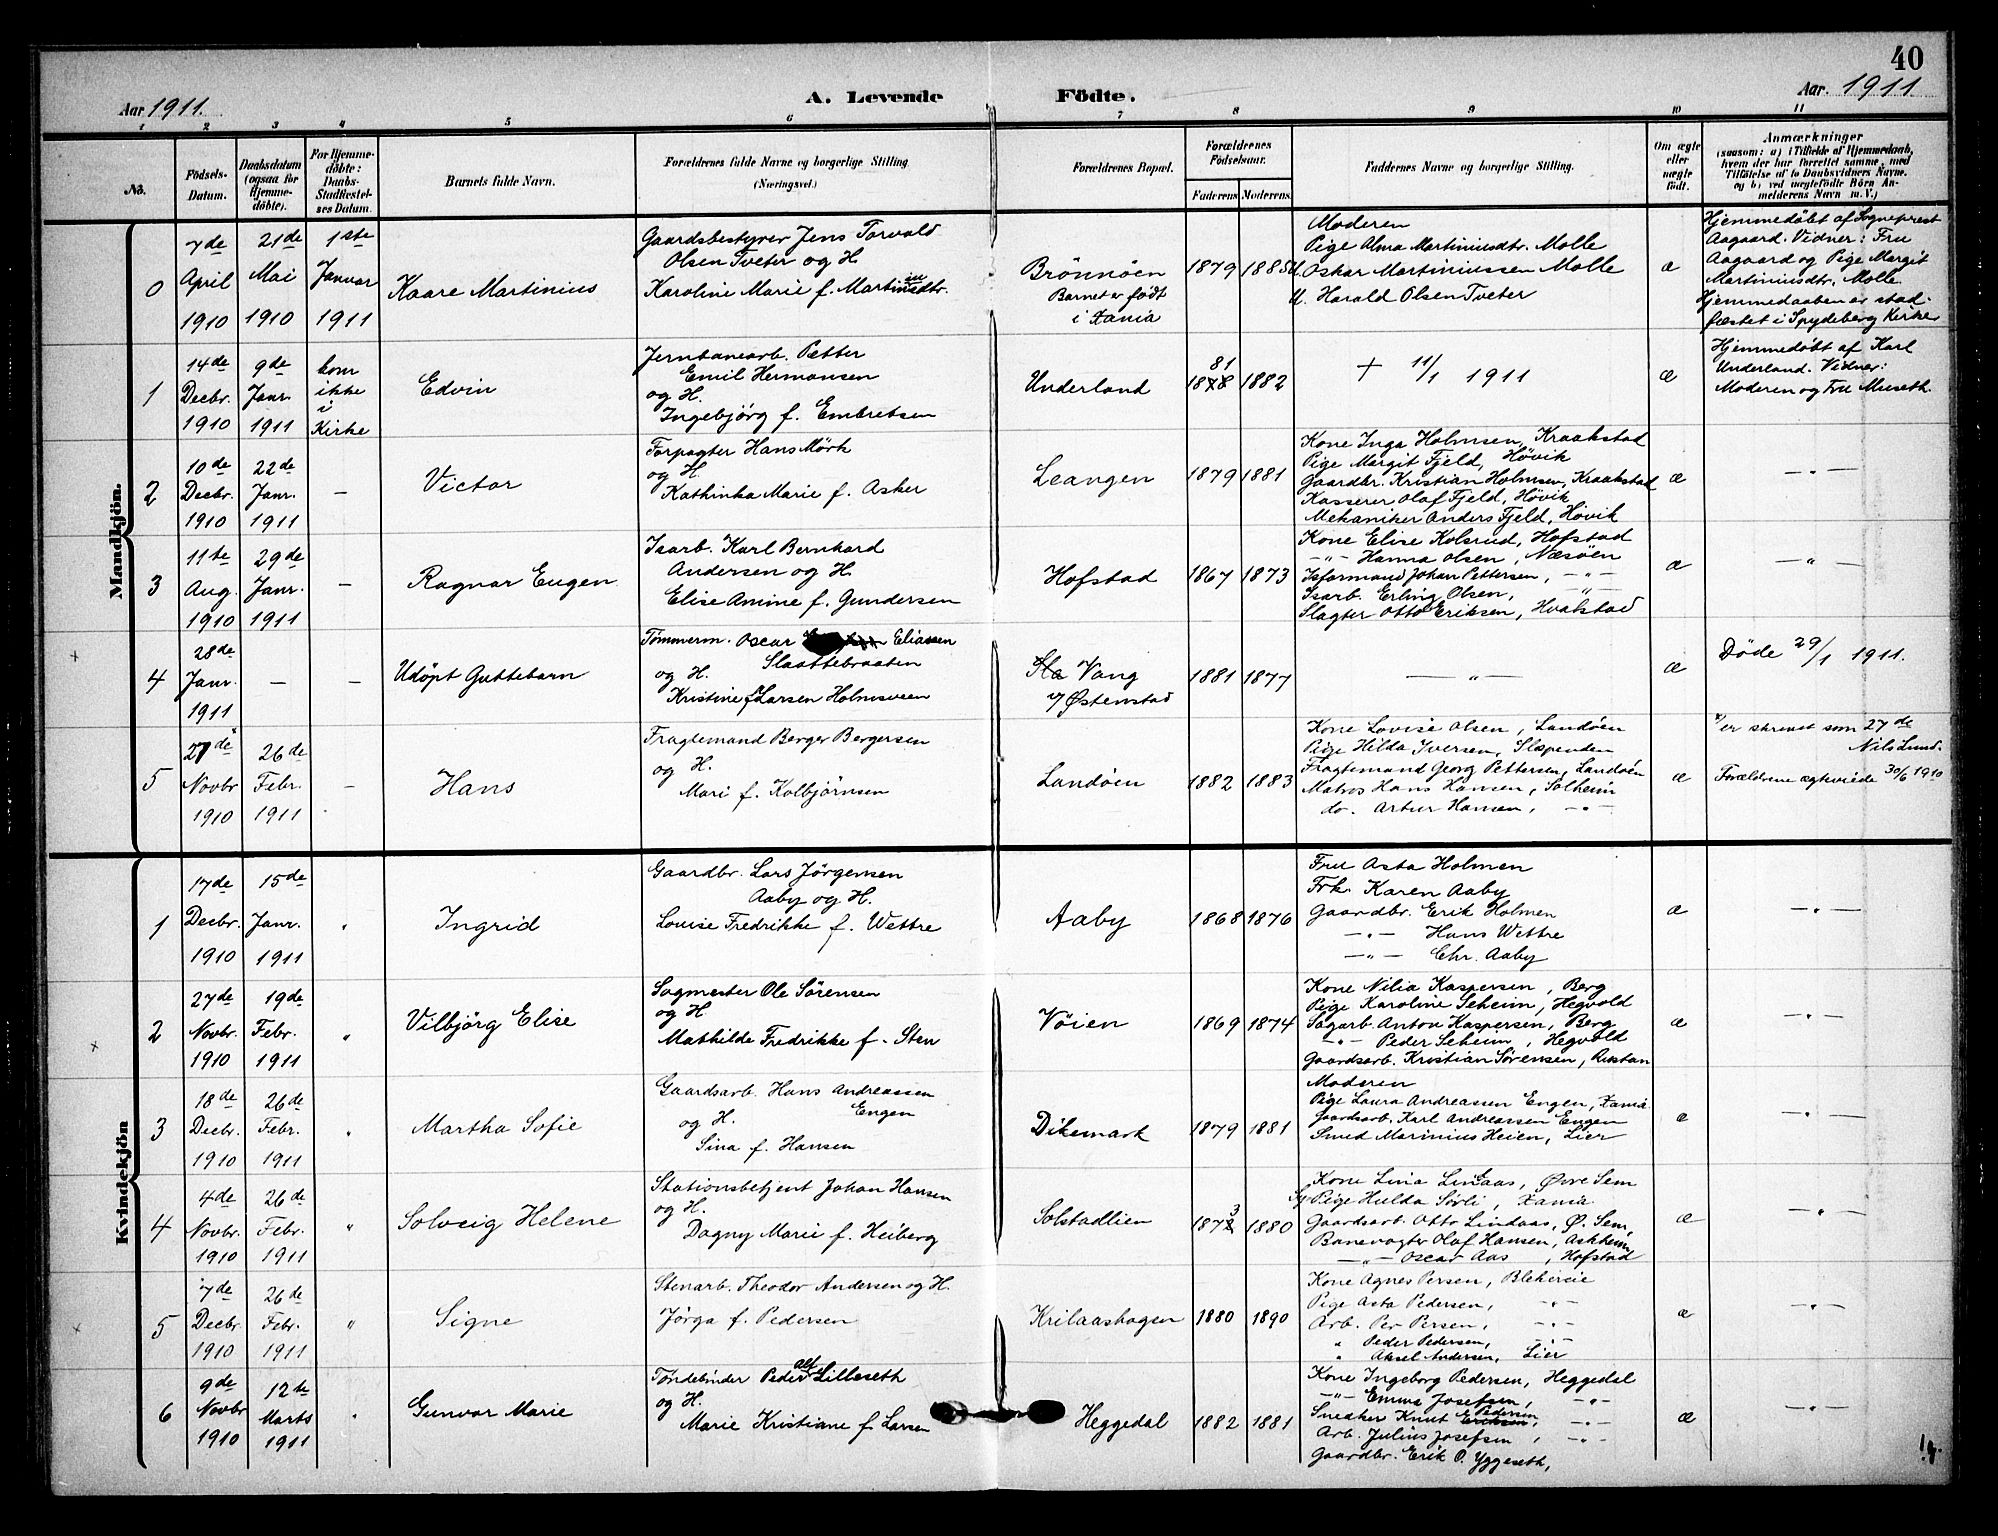 40
Aar 1911.
A. Levende Födte.
Aar. 1911
1 2 3 4 5 6 7 8 9 10 11
No.
Födsels-Datum.
Daabsdatum (ogsaa for Hjemme-döbte).
For Hjemme-döbte: Daabs-Stadfæstel-ses Datum.
Barnets fulde Navn.
Forældrenes fulde Navne og borgerlige Stilling.
(Næringsvei.)
Forældrenes Bopæl.
Forældrenes Födselsaar.
Faderens Moderens
Faddernes Navne og borgerlige Stilling.
Om ægte eller uægte födt.
Anmærkninger
(saasom: a) i Tilfælde af Hjemmedaab,
hvem der har forrettet samme, med
Tilföielse af to Daabsvidners Navne.
og b) ved uægtefödte Börn An-
melderens Navn m. V.)
Mandkjön.
0
7de April 1910
21de Mai 1910
1ste Januar 1911
Kaare Martinius
Gaardsbestyrer Jens Torvald
Olsen Tveter og H.
Karoline Marie f. Martiniusdtr.
Brönnöen
Barnet er födt
i Xania
1879 1885
Moderen
Pige Alma Martiniusdtr. Molle
U. Oskar Martiniussen Molle
U. Harald Olsen Tveter
æ
Hjemmedöbt af Sogneprest
Aagaard. Vidner: Fru
Aagaard og Pige Margit
Martiniusdtr. Molle.
Hjemmedaaben er stad-
fæstet i Spydeberg Kirke
1
14de Decbr. 1910
9de Janr. 1911
kom ikke i Kirke
Edvin
Jernbanearb. Petter
Emil Hermansen
og H.
Ingebjörg f. Embretsen
Underland
81
1878 1882
+ 11/1 1911
æ
Hjemmedöbt af Karl
Underland. Vidner:
Moderen og Fru Museth.
2
10de Decbr. 1910
22de Janr. 1911
-
Victor
Forpagter Hans Mörk
og H.
Kathinka Marie f. Asker
Leangen
1879 1881
Kone Inga Holmsen, Kraakstad
Pige Margit Fjeld, Hövik
Gaardbr. Kristian Holmsen, Kraakstad
Kasserer Olaf Fjeld, Hövik
Mekaniker Anders Fjeld, Hövik
æ
- " -
3
11te Aug. 1910
29de Janr. 1911
-
Ragnar Eugen
Isarb. Karl Bernhard
Andersen og H.
Elise Amine f. Gundersen
Hofstad
1867 1873
Kone Elise Kolsrud, Hofstad
- " - Hanna Olsen, Næsöen
Isformand Johan Pettersen, - " -
Isarb. Erling Olsen, - " -
Slagter Otto Eriksen, Hvalstad
æ
- " -
4
28de Janr. 1911
- -
Udöpt Guttebarn
Tömmerm. Oscar Eliassen
Slaattebraaten
og H.
Kristine f. Larsen Holmsveen
Vang
v/ Østenstad
1881 1877
- " -
æ
Döde 29/1 1911.
5
27de Novbr 1910
26de Febr. 1911
-
Hans
Fragtemand Berger Bergersen
og H.
Mari f. Kolbjörnsen
Landöen
1882 1883
Kone Lovise Olsen, Landöen
Pige Hilda Iversen, Slependen
Fragtemand Georg Pettersen, Landöen
Matros Hans Hansen, Solheim
do. Artur Hansen, - " -
æ
x) er skrevet som 27de
Nils Lund.
Forældrene ægteviede 30/6 1910
Kvindekjön
1
17de Decbr. 1910
15de Janr. 1911
"
Ingrid
Gaardbr. Lars Jörgensen
Aaby og H.
Louise Fredrikke f. Wettre
Aaby
1868 1876
Fru Asta Holmen
Frk. Karen Aaby
Gaardbr. Erik Holmen
- " - Hans Wettre
- " - Chr. Aaby
æ
- " -
2
27de Novbr. 1910
19de Febr. 1911
"
Vilbjörg Elise
Sagmester Ole Sörensen
og H
Mathilde Fredrikke f. Sten
Vöien
1869 1874
Kone Nilia Kaspersen, Berg
Pige Karoline Seheim, Hegvold
Sagarb. Anton Kaspersen, Berg
- " - Peder Seheim, Hegvold
Gaardsarb. Kristian Sørensen, Rustan
æ
- " -
3
18de Decbr. 1910
26de Febr. 1911
"
Martha Sofie
Gaardsarb. Hans Andreassen
Engen
og H.
Sina f. Hansen
Dikemark
1879 1881
Moderen
Pige Laura Andreassen Engen, Xania
Gaardsarb. Karl Andreassen Engen
Smed Marinius Heien, Lier
æ
- " -
4
4de Novbr. 1910
26de Febr. 1911
"
Solveig Helene
Stationsbetjent Johan Hansen
og H.
Dagny Marie f. Heiberg
Solstadlien
3
1872 1880
Kone Lina Lindaas, Øvre Sem
Pige Hulda Sørli, Xania
Gaardsarb. Otto Lindaas, Ø. Sem,
Banevogter Olaf Hansen, Askheim
- " - Oscar Aas, Hofstad
æ
- " -
5
7de Decbr. 1910
26de Febr. 1911
"
Signe
Stenarb. Theodor Andersen og H.
Jörga f. Pedersen
Krilaashagen
1880 1890
Kone Agnes Persen, Blekereie
Pige Asta Pedersen, - " -
Arb. Per Persen, - " -
" Peder Pedersen, - " -
" Aksel Andersen, Lier
æ
- " -
6
9de Novbr 1910
12te Marts 1911
"
Gunvor Marie
Töndebinder Peder Alf Lilleseth
og H.
Marie Kristiane f. Larsen
Heggedal
1882 1881
Kone Ingeborg Pedersen, Heggedal
- " - Emma Josefsen, - " -
Snekker Knut Pedersen, - " -
Arb. Julius Josefsen, - " -
Gaardbr. Erik O. Yggeseth,
æ
- " -